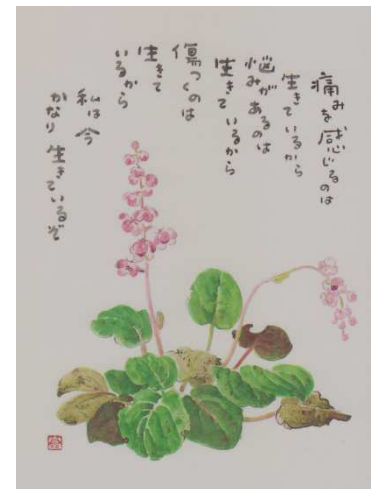 痛みを感じるのは
生きているから
悩みがあるのは
生きているから
傷つくのは
生きて
いるから
私は今
かなり生きているぞ